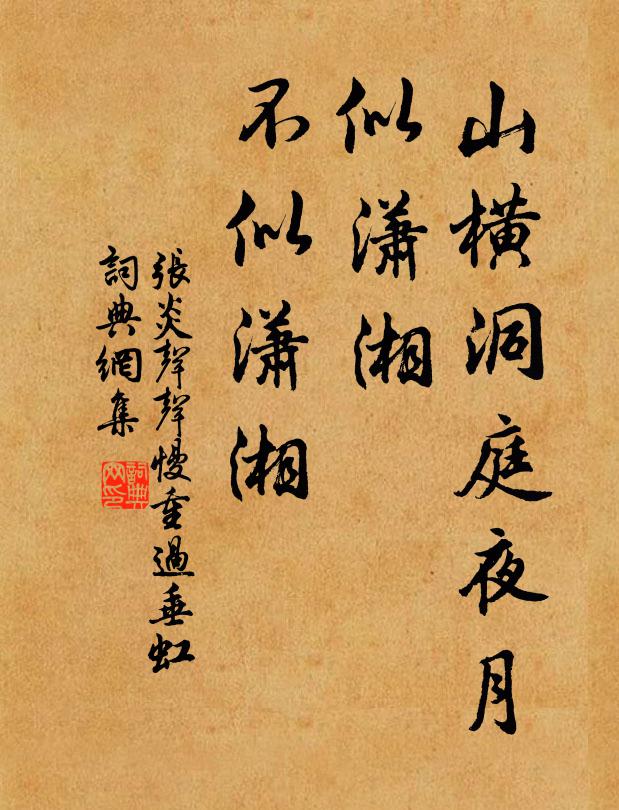 山橫洞庭夜月
似瀟湘
不似瀟湘
張炎聲聲慢重過垂虹
詞典網集
詞典網印